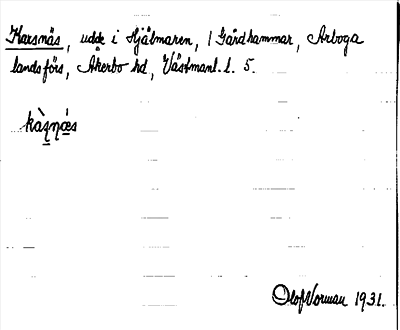 Karsnäs, udde i Hjälmaren, / Gårdhammar, Arboga
landsförs, Åkerbo hd, Västmanl. l. 5.
Olof Vorman 1931.